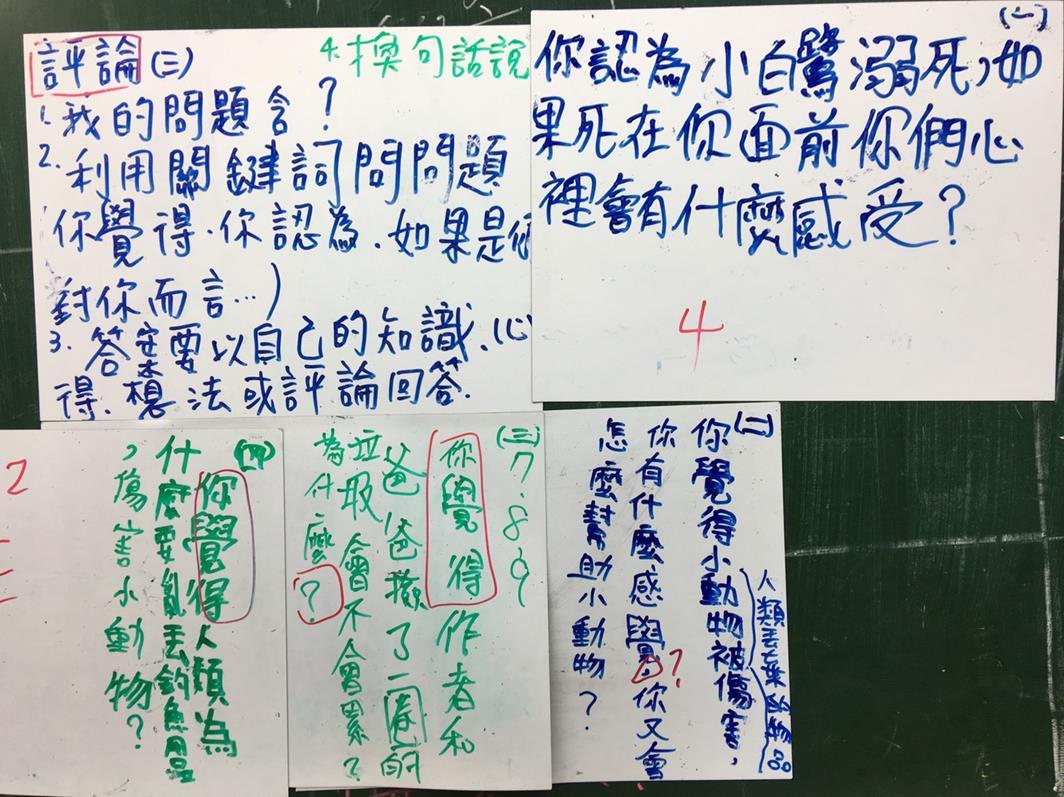 評論(三)
4.換句話說
1.我的問題含?
2.利用關鍵詞問問題
你覺得.你認為.如果是你
對你而言...)
3.答案要以自己的知識.心
得.想法或評論回答.
(一)
你認為小白鷺溺死,如
果死在你面前你們心
裡會有什麼感受?
4
(二)
你覺得小動物被傷害,
人類丟棄的物品
你有什麼感覺?你又會
怎麼幫助小動物?
(三)7.8.9
你覺得作者和
爸爸撿了一圈的
垃圾會不會累?
為什麼?
(四)
你覺得人類為
什麼要亂丟釣魚用品
,傷害小動物?
2